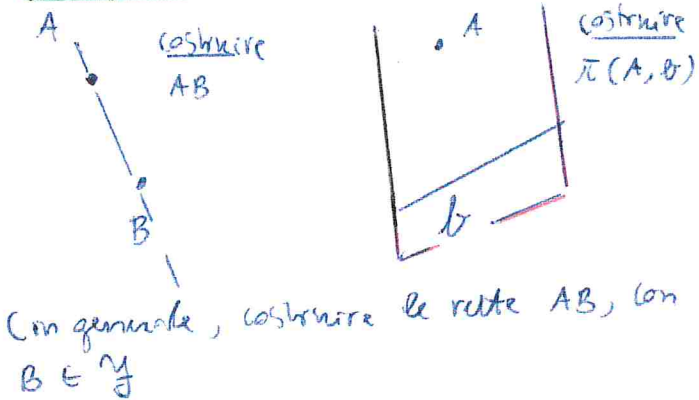 A
costruire
AB
B
A
costruire
π(A, b)
b
(in generale, costruire le rette AB, con
B ∈ 𝒴